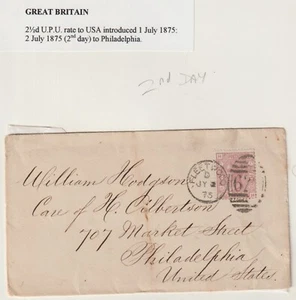 GREAT BRITAIN
2½d U.P.U. rate to USA introduced 1 July 1875:
2 July 1875 (2nd day) to Philadelphia.
2nd DAY
William Hodgson
Care of H. Gilbertson
707 Market Street
Philadelphia
United States.
JY 2
75